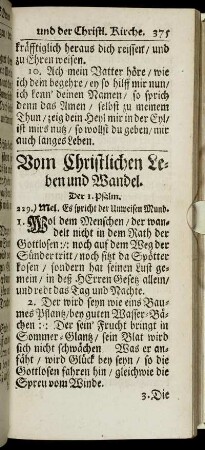 und der Christl. Kirche. 375
kräfftiglich heraus dich reissen / und
zu Ehren weisen.
10. Ach mein Vatter höre / wie
ich dem begehre / ey so hilf mir nun /
ich kenn' deinen Namen / so sprich
denn das Amen / selbst zu meinem
Thun / zeig dein Heyl mir in der Eyl /
ist mirs nutz / so wollst du geben / mir
auch langes Leben.
Vom Christlichen Le-
ben und Wandel.
Der 1. Psalm.
229.) Mel. Es spricht der Unweisen Mund.
1. Wol dem Menschen / der wan-
delt nicht in dem Rath der
Gottlosen :/: noch auf dem Weg der
Sünder tritt / noch sitzt da Spötter
kosen / sondern hat seinen Lust ge-
mein / in deß HErren Gesetz allein /
und redt das Tag und Nachte.
2. Der wird seyn wie eins Bau-
mes Pflantz / bey guten Wasser-Bä-
chen :/: Der sein' Frucht bringt in
Sommer-Glantz / sein Blat wird
sich nicht schwächen Was er an-
fäht / wird Glück bey seyn / so die
Gottlosen fahren hin / gleichwie die
Spreu vom Winde.
3. Die